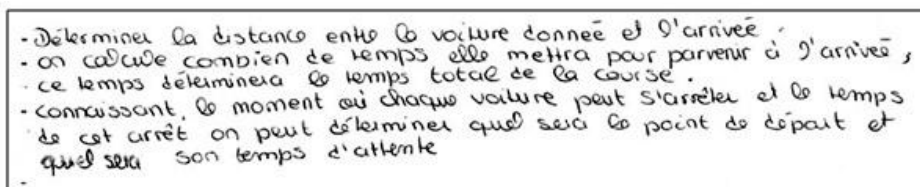 - Déterminer la distance entre la voiture donneé et l'arriveé.
- on calcule combien de temps elle mettra pour parvenir à l'arriveé,
- ce temps déterminera le temps total de la course.
- connaissant, le moment où chaque voiture peut s'arrêter et le temps
de cet arrêt on peut déterminer quel sera le point de départ et
quel sera son temps d'attente
-